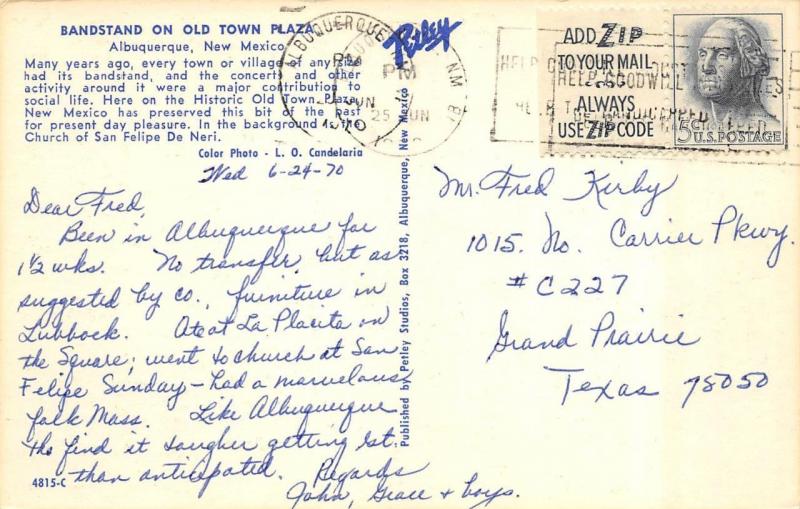 BANDSTAND ON OLD TOWN PLAZA
Albuquerque, New Mexico
Many years ago, every town or village of any size
had its bandstand, and the concerts and other
activity around it were a major contribution to
social life. Here on the Historic Old Town Plaza,
New Mexico has preserved this bit of the past
for present day pleasure. In the background is the
Church of San Felipe De Neri.
Color Photo - L. O. Candelaria
Wed 6-24-70
Dear Fred,
Been in Albuquerque for
1½ wks. No transfer, but as
suggested by co., furniture in
Lubbock. Ate at La Placita on
the Square; went to church at San
Felipe Sunday – had a marvelous
folk Mass. Like Albuquerque
tho find it tougher getting est.
than anticipated. Regards
John, Grace & boys.
4815-C
Published by Petley Studios, Box 3218, Albuquerque, New Mexico
Petley
ALBUQUERQUE
N.M.
PM
25 JUN
ADD ZIP
TO YOUR MAIL
ALWAYS
USE ZIP CODE
5 CENTS
U.S. POSTAGE
HELP GOODWILL
Mr. Fred Kirby
1015 No. Carrier Pkwy.
#C227
Grand Prairie
Texas 75050